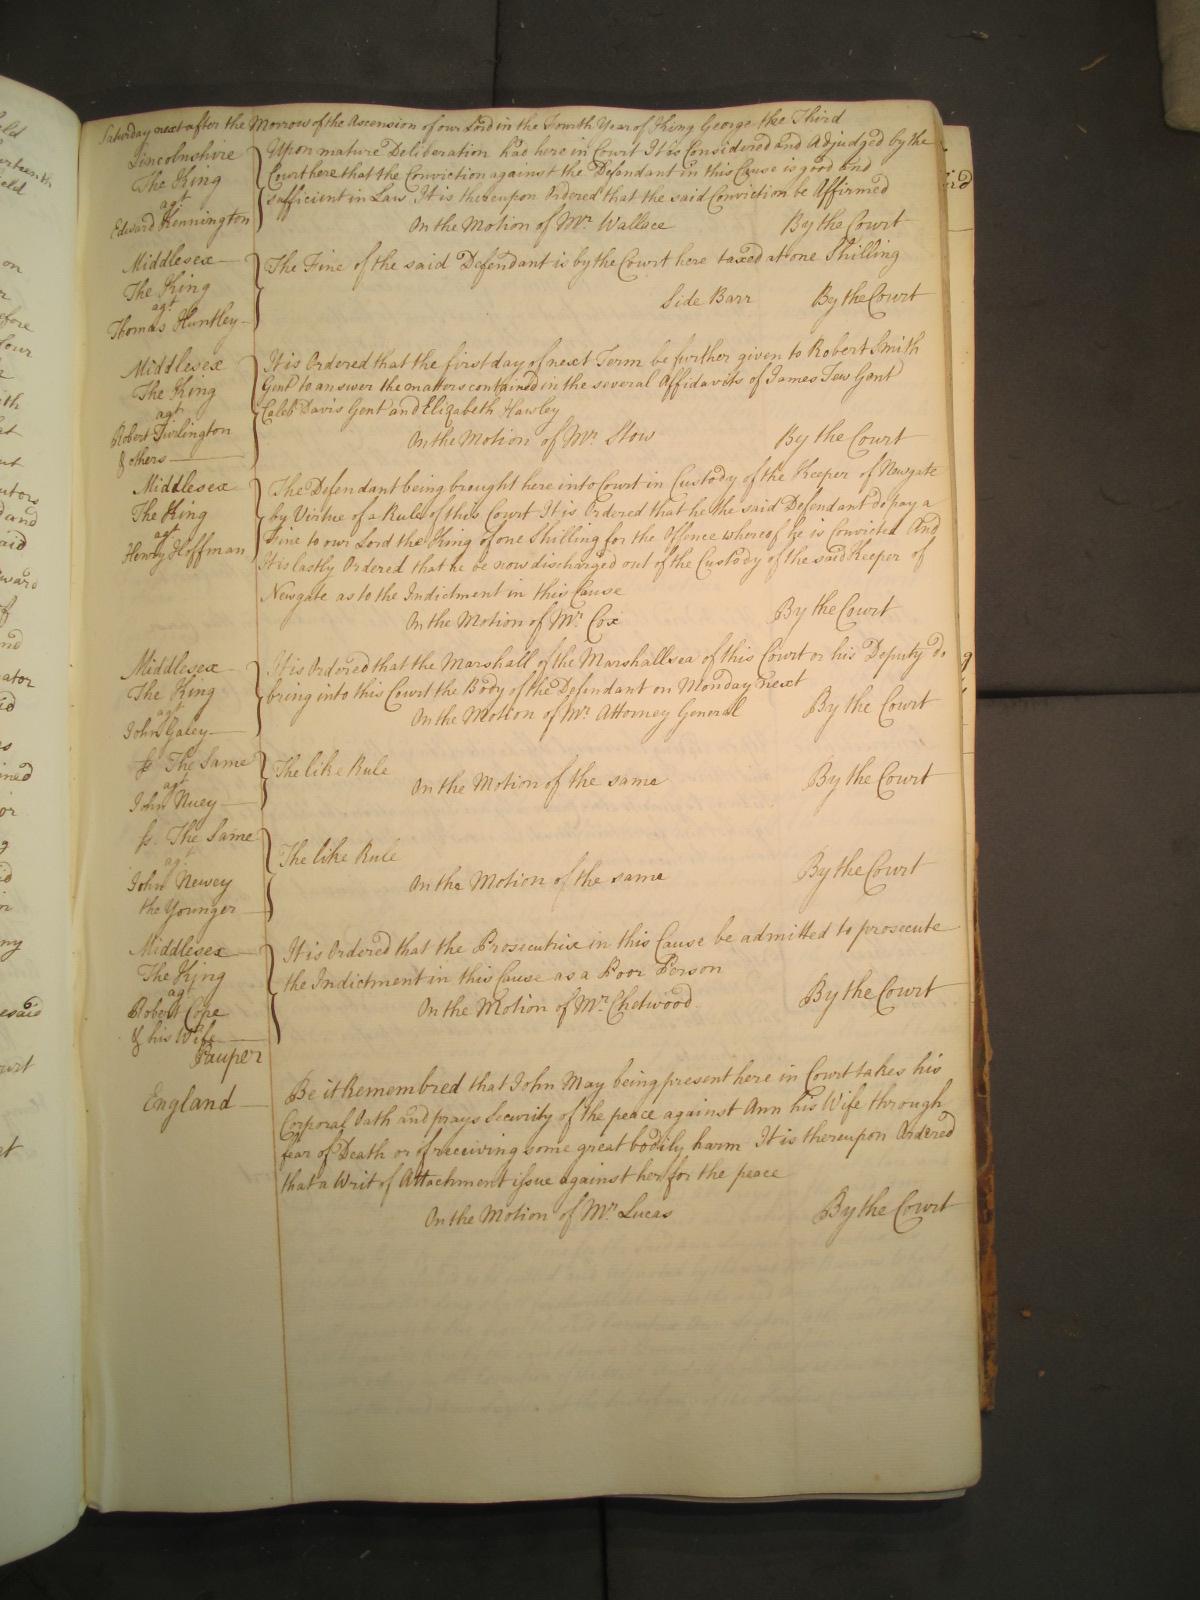 Saturday next after the Morrow of the Ascension of our Lord in the Fourth Year of King George the Third
Lincolnshire
The King
agt
Edward Kennington
Upon mature Deliberation had here in Court It is Considered and Adjudged by the
Court here that the Conviction against the Defendant in this Cause is good and
sufficient in Law It is thereupon Ordered that the said Conviction be Affirmed
On the Motion of Mr. Wallace By the Court
Middlesex
The King
agt
Thomas Huntley
The Fine of the said Defendant is by the Court here taxed at one Shilling
Side Barr By the Court
Middlesex
The King
agt
Robert Turlington
& others
It is Ordered that the first day of next Term be further given to Robert Smith
Gent to answer the matters contained in the several Affidavits of James Tew Gent
Caleb Davis Gent and Elizabeth Hawley
On the Motion of Mr. Stow By the Court
Middlesex
The King
agt
Henry Hoffman
The Defendant being brought here into Court in Custody of the Keeper of Newgate
by Virtue of a Rule of this Court It is Ordered that he the said Defendant do pay a
Fine to our Lord the King of one Shilling for the Offence whereof he is Convicted And
It is lastly Ordered that he be now discharged out of the Custody of the said Keeper of
Newgate as to the Indictment in this Cause
On the Motion of Mr. Cox By the Court
Middlesex
The King
agt
John Galey
It is Ordered that the Marshall of the Marshallsea of this Court or his Deputy do
bring into this Court the Body of the Defendant on Monday next
On the Motion of Mr. Attorney General By the Court
ss The Same
agt
John Nuey
The like Rule
On the Motion of the same By the Court
ss. The Same
agt
John Newey
the Younger
The like Rule
On the Motion of the same By the Court
Middlesex
The King
agt
Robert Cope
& his Wife
Pauper
It is Ordered that the Prosecutrix in this Cause be admitted to prosecute
the Indictment in this Cause as a Poor Person
On the Motion of Mr. Chetwood By the Court
England
Be it Remembred that John May being present here in Court takes his
Corporal Oath and prays Security of the peace against Ann his Wife through
fear of Death or of receiving some great bodily harm It is thereupon Ordered
that a Writ of Attachment issue against her for the peace
On the Motion of Mr. Lucas By the Court